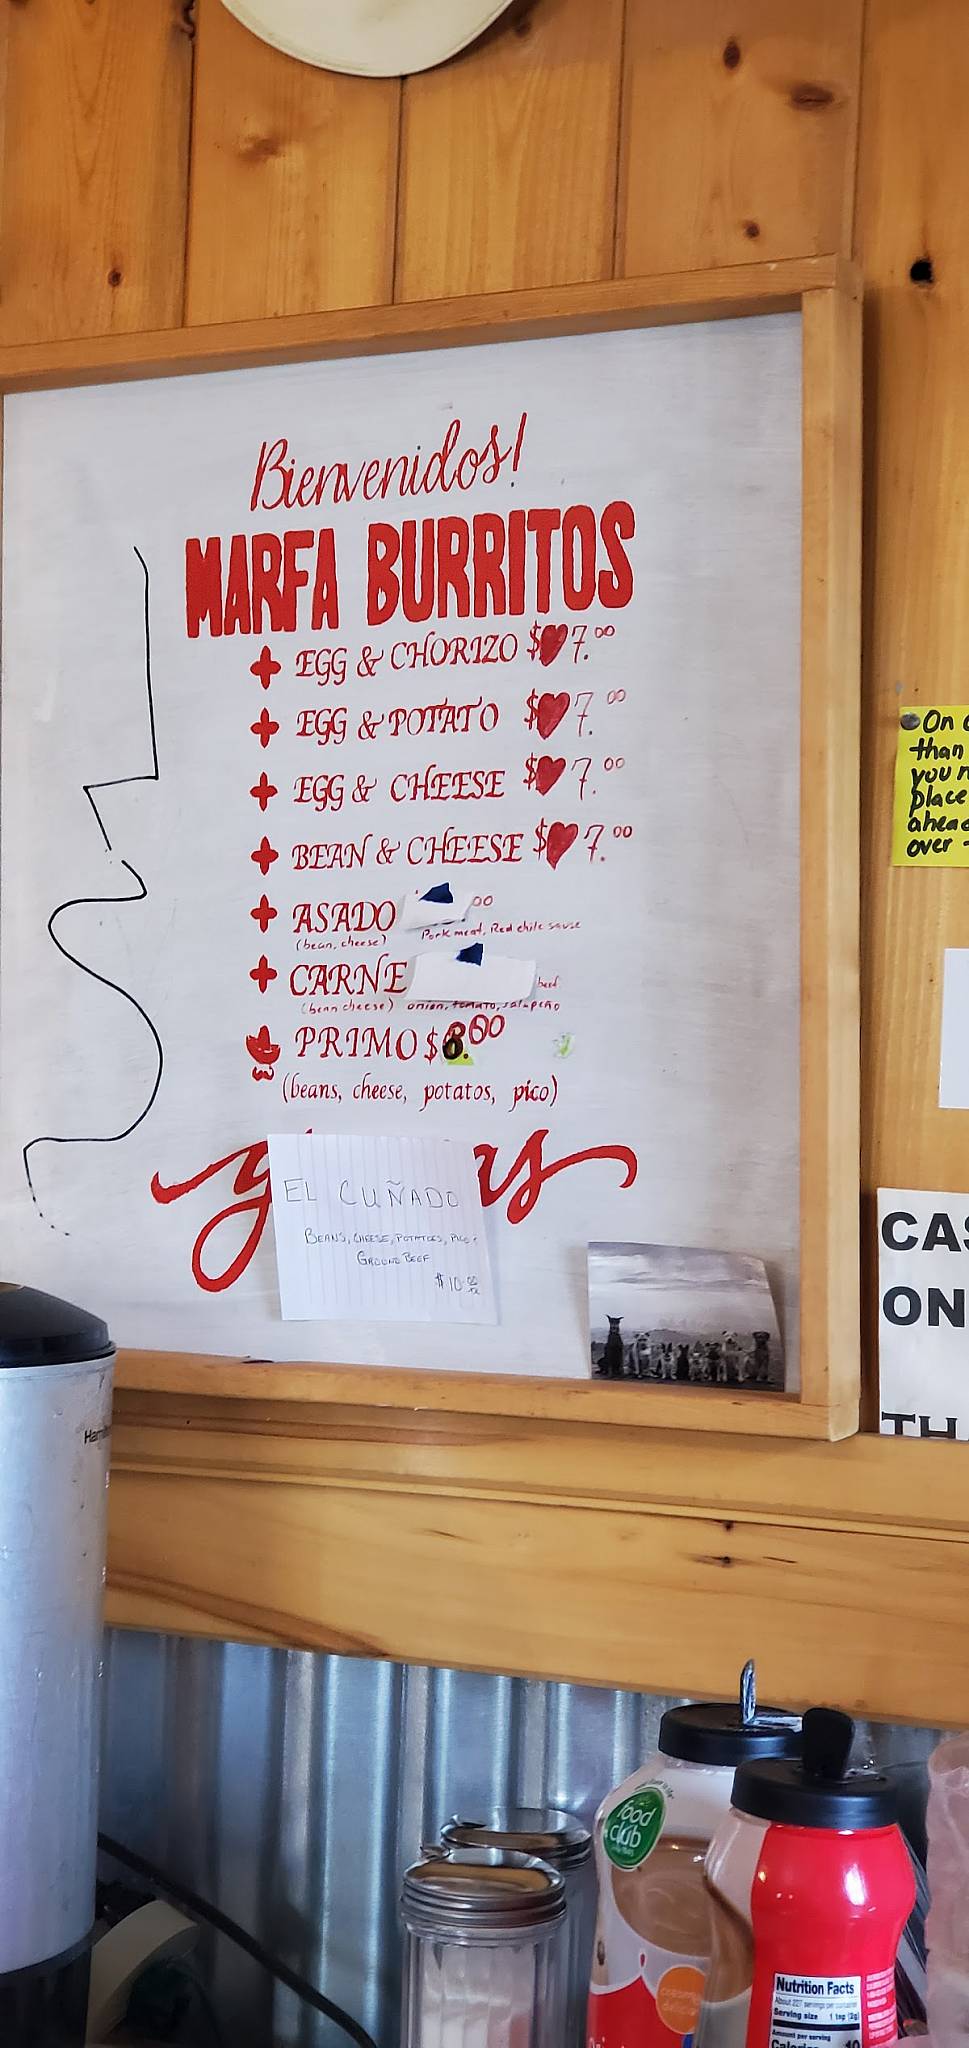 Bienvenidos!
MARFA BURRITOS
EGG & CHORIZO $ 7.00
EGG & POTATO $ 7.00
EGG & CHEESE $ 7.00
BEAN & CHEESE $ 7.00
ASADO 00
(bean, cheese) Pork meat, Red chile sauce
CARNE beef
(bean cheese) onion, tomato, jalapeño
PRIMO $8.00
(beans, cheese, potatos, pico)
EL CUÑADO
BEANS, CHEESE, POTATOES, PICO,
GROUND BEEF
$10.00
On
than
you
place
ahead
over
CAS
ON
food
club
Nutrition Facts
About 227 servings per container
Serving size 1 tsp (2g)
Amount per serving
Calories 10